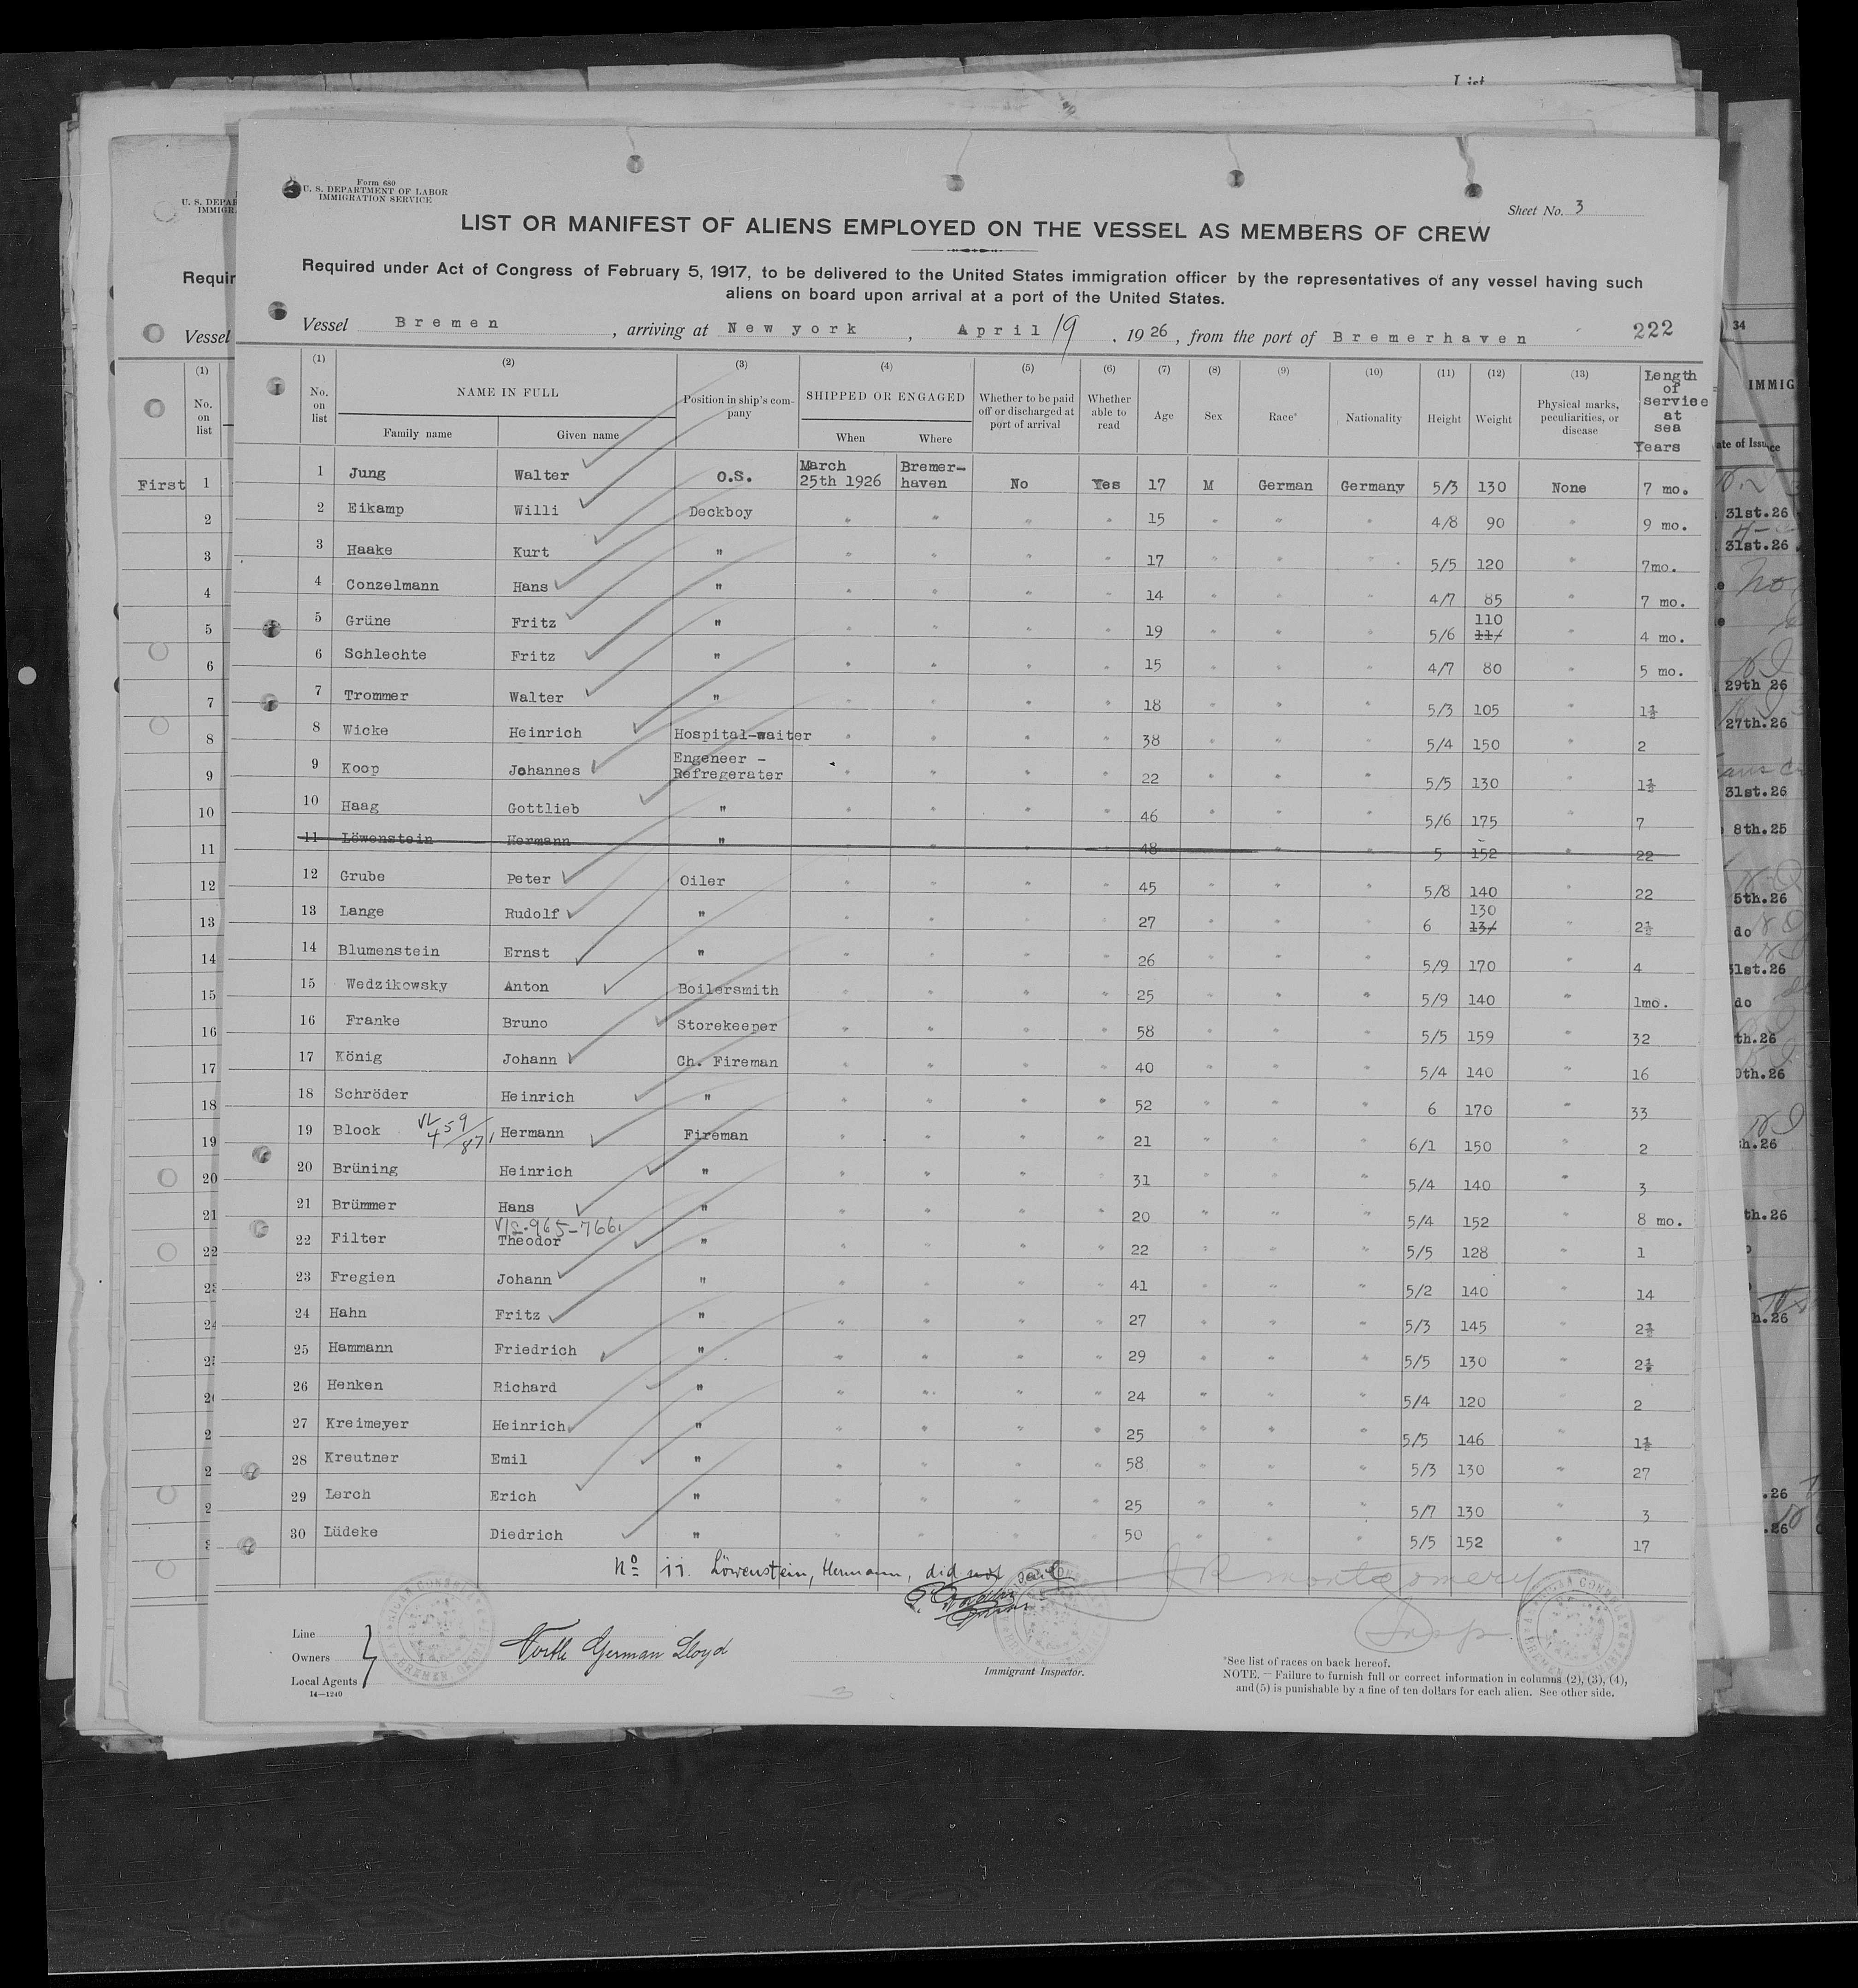 List
Form 680
U. S. DEPARTMENT OF LABOR
IMMIGRATION SERVICE
Sheet No. 3
LIST OR MANIFEST OF ALIENS EMPLOYED ON THE VESSEL AS MEMBERS OF CREW
Required under Act of Congress of February 5, 1917, to be delivered to the United States immigration officer by the representatives of any vessel having such
aliens on board upon arrival at a port of the United States.
Vessel Bremen, arriving at New york, April 19, 1926, from the port of Bremerhaven 222
(1) (2) (3) (4) (5) (6) (7) (8) (9) (10) (11) (12) (13) Length of service at sea Years
No. on list NAME IN FULL Position in ship's company SHIPPED OR ENGAGED Whether to be paid off or discharged at port of arrival Whether able to read Age Sex Race* Nationality Height Weight Physical marks, peculiarities, or disease
Family name Given name When Where
1 Jung Walter O.S. March 25th 1926 Bremer-haven No Yes 17 M German Germany 5/3 130 None 7 mo.
2 Eikamp Willi Deckboy " " " " 15 " " " 4/8 90 " 9 mo.
3 Haake Kurt " " " " " 17 " " " 5/5 120 " 7mo.
4 Conzelmann Hans " " " " " 14 " " " 4/7 85 " 7 mo.
5 Grüne Fritz " " " " " 19 " " " 5/6 110 117 " 4 mo.
6 Schlechte Fritz " " " " " 15 " " " 4/7 80 " 5 mo.
7 Trommer Walter " " " " " 18 " " " 5/3 105 " 1½
8 Wicke Heinrich Hospital-waiter " " " " 38 " " " 5/4 150 " 2
9 Koop Johannes Engeneer - Refregerater " " " " 22 " " " 5/5 130 " 1½
10 Haag Gottlieb " " " " " 46 " " " 5/6 175 " 7
11 Löwenstein Hermann " " " " " 48 " " " 5 152 " 22
12 Grube Peter Oiler " " " " 45 " " " 5/8 140 " 22
13 Lange Rudolf " " " " " 27 " " " 6 130 137 " 2½
14 Blumenstein Ernst " " " " " 26 " " " 5/9 170 " 4
15 Wedzikowsky Anton Boilersmith " " " " 25 " " " 5/9 140 " 1mo.
16 Franke Bruno Storekeeper " " " " 58 " " " 5/5 159 " 32
17 König Johann Ch. Fireman " " " " 40 " " " 5/4 140 " 16
18 Schröder Heinrich " " " " " 52 " " " 6 170 " 33
19 Block Hermann Fireman " " " " 21 " " " 6/1 150 " 2
20 Brüning Heinrich " " " " " 31 " " " 5/4 140 " 3
21 Brümmer Hans " " " " " 20 " " " 5/4 152 " 8 mo.
V/S.965-766
22 Filter Theodor " " " " " 22 " " " 5/5 128 " 1
23 Fregien Johann " " " " " 41 " " " 5/2 140 " 14
24 Hahn Fritz " " " " " 27 " " " 5/3 145 " 2½
25 Hammann Friedrich " " " " " 29 " " " 5/5 130 " 2½
26 Henken Richard " " " " " 24 " " " 5/4 120 " 2
27 Kreimeyer Heinrich " " " " " 25 " " " 5/5 146 " 1½
28 Kreutner Emil " " " " " 58 " " " 5/3 130 " 27
29 Lerch Erich " " " " " 25 " " " 5/7 130 " 3
30 Lüdeke Diedrich " " " " " 50 " " " 5/5 152 " 17
No 11. Löwenstein, Hermann, did not sail
J R Montgomery
Insp.
Line
Owners North German Lloyd
Local Agents
14—1240
Immigrant Inspector.
*See list of races on back hereof.
NOTE. — Failure to furnish full or correct information in columns (2), (3), (4),
and (5) is punishable by a fine of ten dollars for each alien. See other side.
3